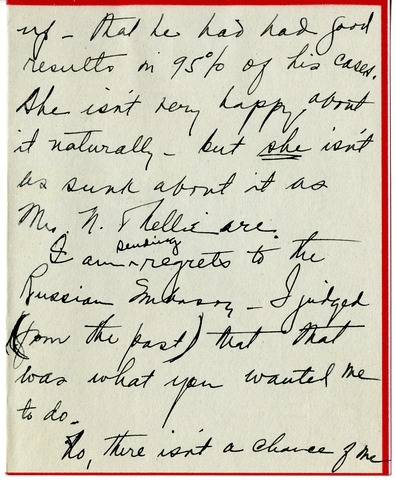 up - that he had had good
results in 95% of his cases.
She isn't very happy about
it naturally - but she isn't
as sunk about it as
Mr. N. & Nellie are.
I am sending regrets to the
Russian Embassy - I judged
(from the past) that that
was what you wanted me
to do.
No, there isn't a chance of me